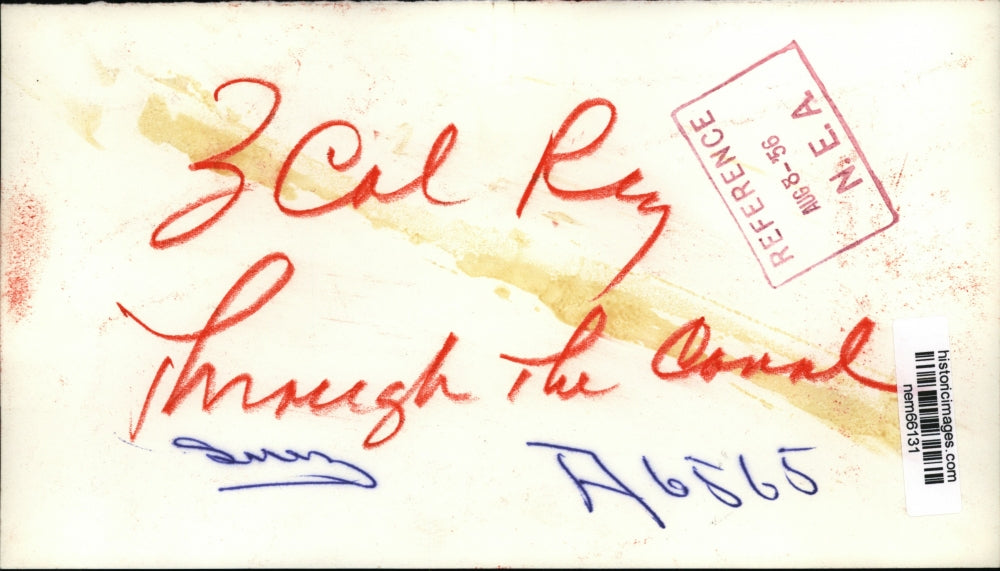 3 Col Reg
Through the Canal
Suez
A6565
REFERENCE
AUG 8-56
N.E.A
historicimages.com
nem66131